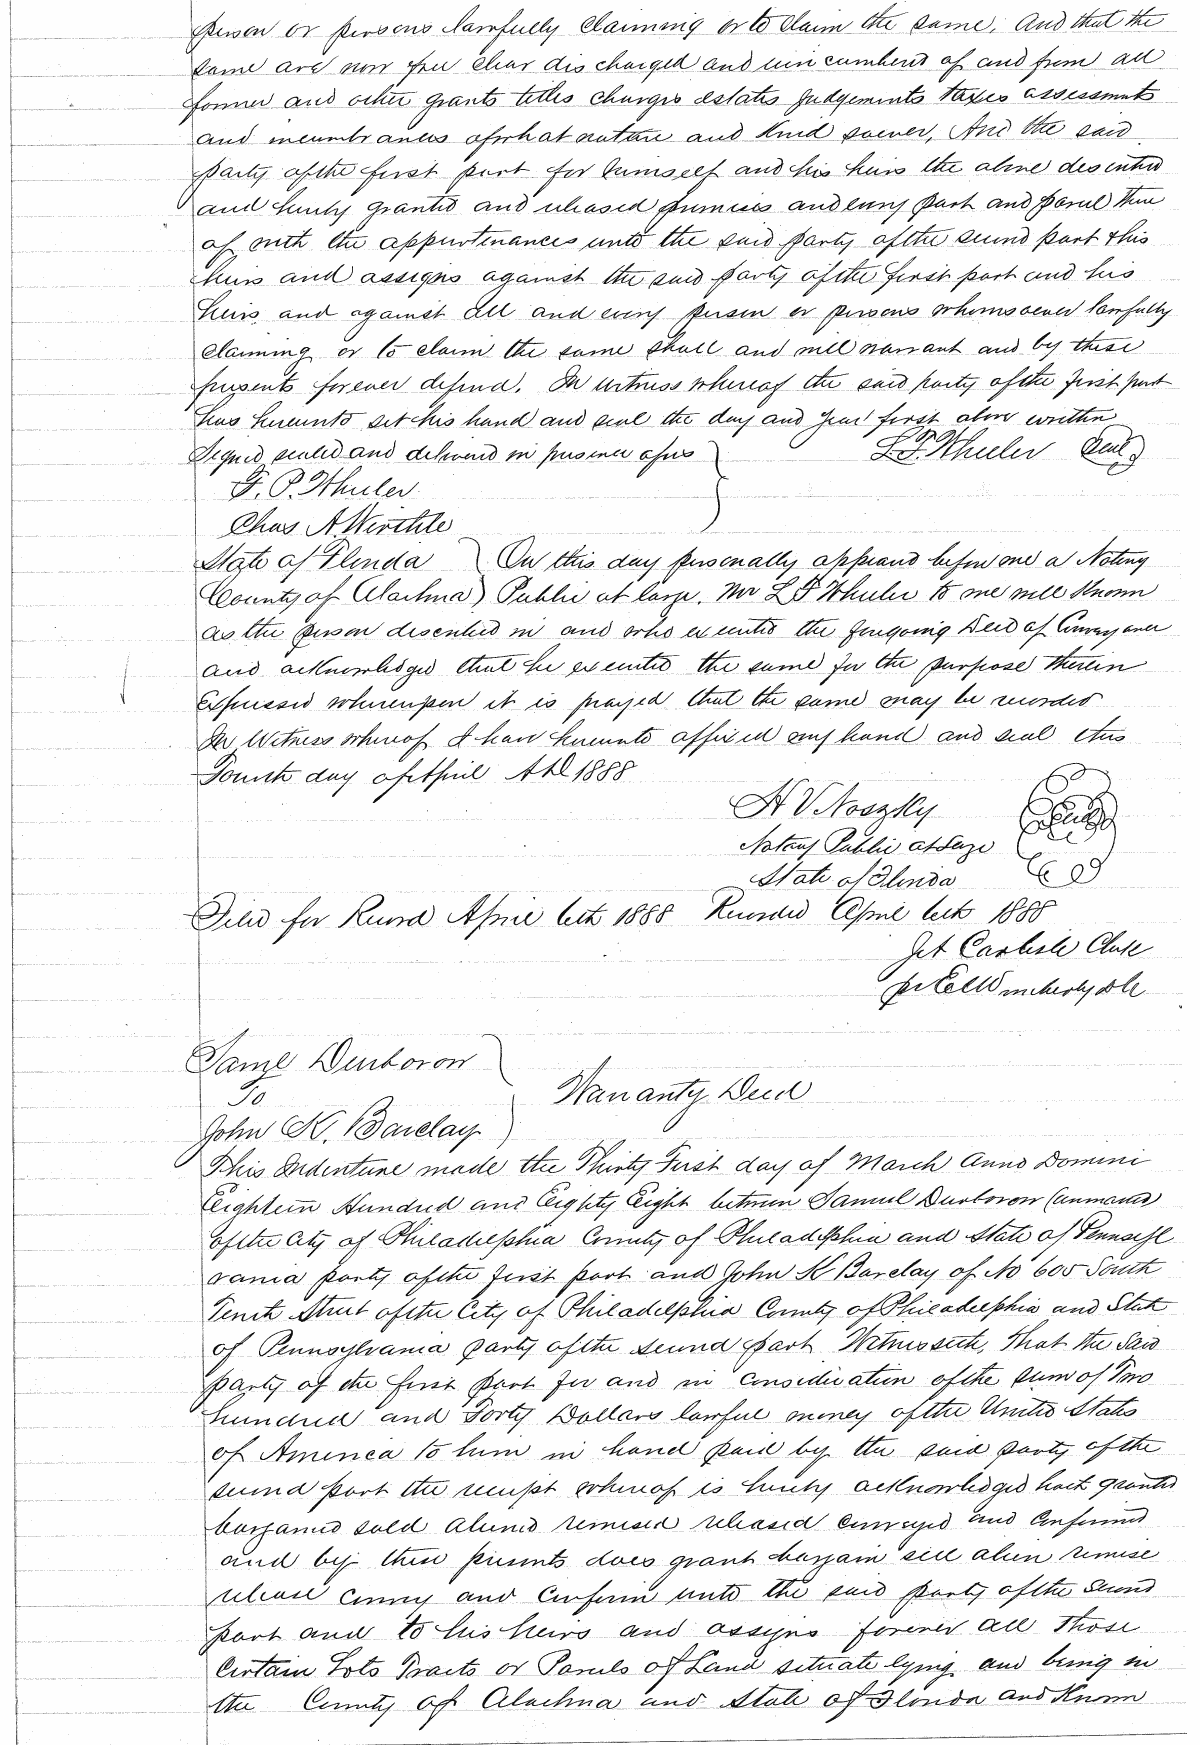 person or persons lawfully claiming or to claim the same, And that the
same are now free clear discharged and unincumbered of and from all
former and other grants titles charges estates judgements taxes assessments
and incumbrances of what nature and kind soever, And the said
party of the first part for himself and his heirs the above described
and hereby granted and released premises and every part and parcel there
of with the appurtenances unto the said party of the second part & his
heirs and assigns against the said party of the first part and his
heirs and against all and every person or persons whomsoever lawfully
claiming or to claim the same shall and will warrant and by these
presents forever defend. In witness whereof the said party of the first part
has hereunto set his hand and seal the day and year first above written
Signed sealed and delivered in presence of us
L. F. Wheeler Seal
F. P. Wheeler
Chas A
State of Florida On this day personally appeared before me a Notary
County of Alachua Public at large. Mr L F Wheeler to me well known
as the person described in and who executed the foregoing Deed of Conveyance
and acknowledged that he executed the same for the purpose therein
expressed whereupon it is prayed that the same may be recorded
In Witness whereof I have hereunto affixed my hand and seal this
Fourth day of April AD 1888
H V Noszky
Notary Public at Large
State of Florida
Filed for Record April 6th 1888 Recorded April 6th 1888
Carlisle Clerk
Saml Durborow
To
Warranty Deed
John K. Barclay
This Indenture made the Thirty First day of March Anno Domini
Eighteen Hundred and Eighty Eight between Samuel Durborow (unmarried
of the City of Philadelphia County of Philadelphia and State of Pennsyl
vania party of the first part and John K Barclay of No 605 South
Tenth Street of the City of Philadelphia County of Philadelphia and State
of Pennsylvania party of the second part Witnesseth, That the Said
party of the first part for and in consideration of the sum of Two
hundred and Forty Dollars lawful money of the United States
of America to him in hand paid by the said party of the
second part the receipt whereof is hereby acknowledged hath granted
bargained sold aliened remised released conveyed and confirmed
and by these presents does grant bargain sell alien remise
release convey and confirm unto the said party of the second
part and to his heirs and assigns forever all those
Certain Lots Tracts or Parcels of Land situate lying and being in
the County of Alachua and State of Florida and Known